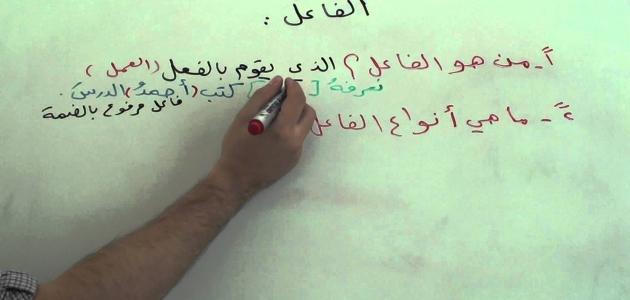 الفاعل :
أ- من هو الفاعل ؟ الذي يقوم بالفعل (العمل)
نعرفهُ [ ] كتب (أحمدُ) الدرسَ.
فاعل مرفوع بالضمة
٢- ما هي أنواع الفاعل